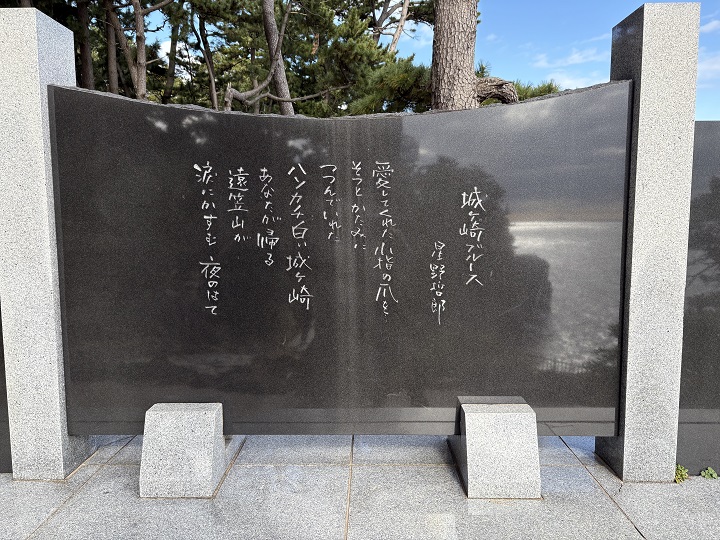 城ヶ崎ブルース
星野哲郎
愛してくれた小指の爪を
そっとかたみに
つつんでいれた
ハンカチ白い城ヶ崎
あなたが帰る
遠笠山が
涙にかすむ 夜のはて